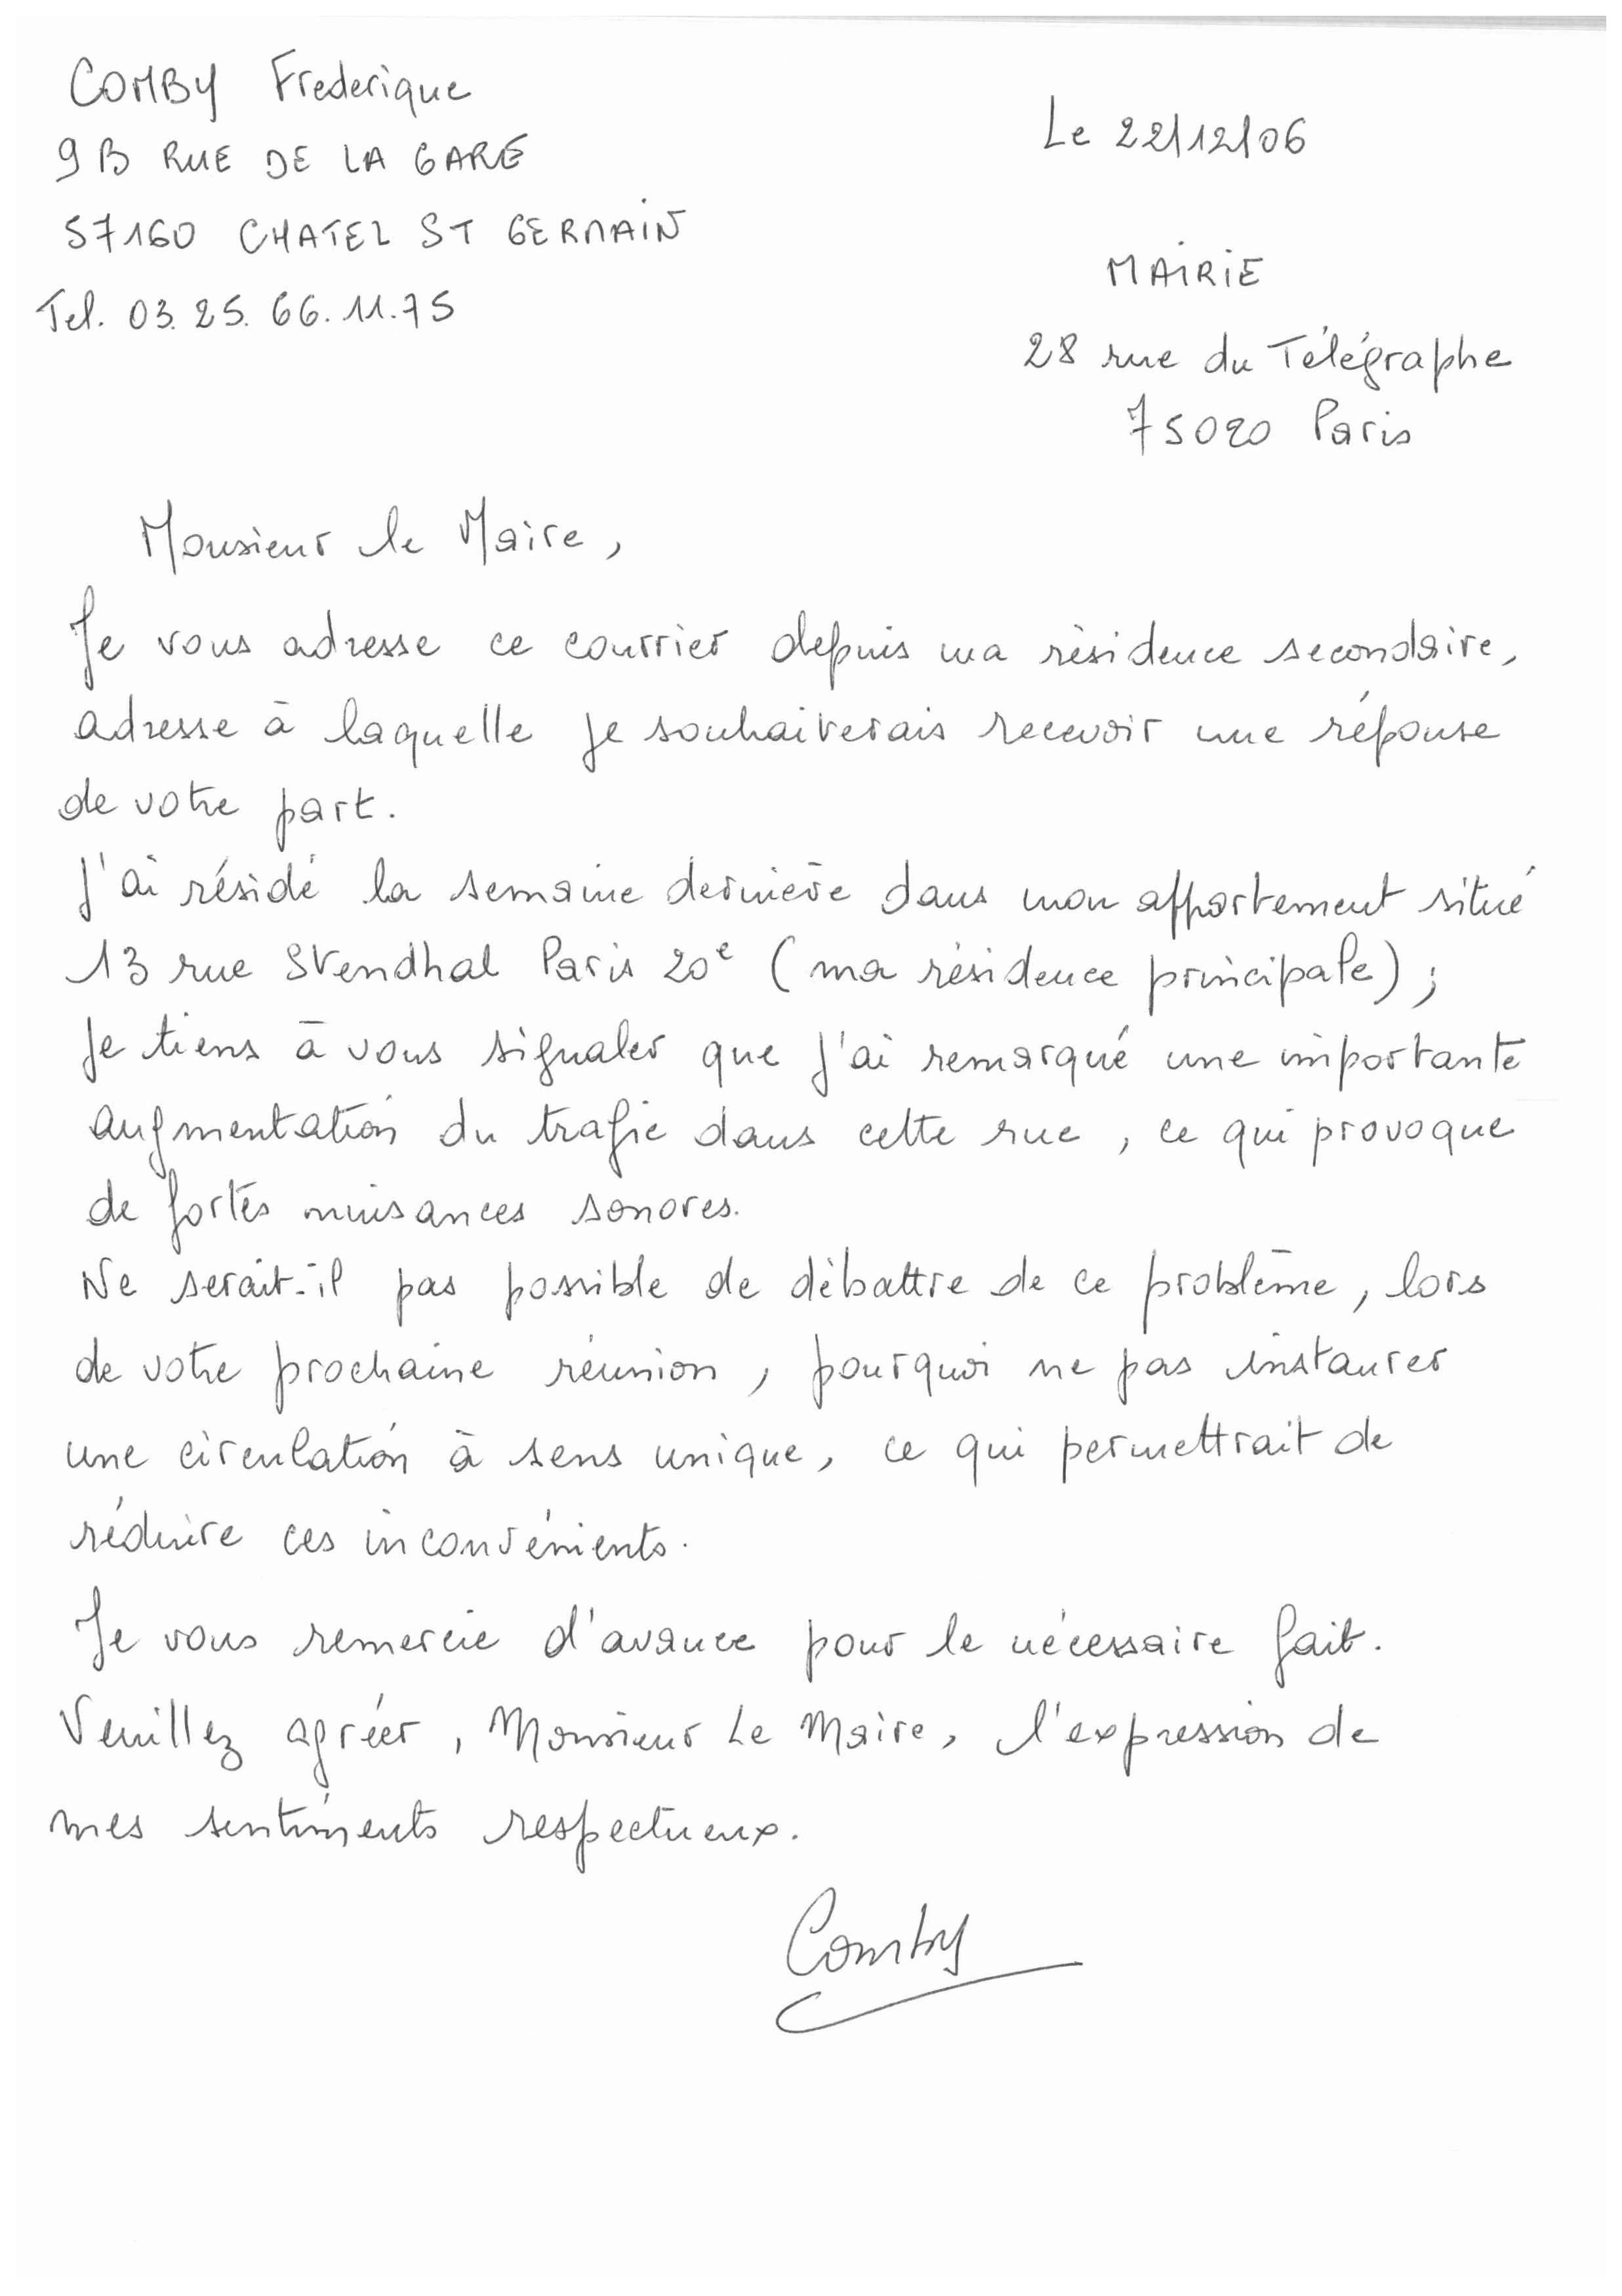 COMBY Frederique
9B RUE DE LA GARE
57160 CHATEL ST GERMAIN
Tel. 03.25.66.11.75
Le 22/12/06
MAIRIE
28 rue du Télégraphe
75020 Paris
Monsieur le Maire,
Je vous adresse ce courrier depuis ma résidence secondaire,
adresse à laquelle je souhaiterais recevoir une réponse
de votre part.
J'ai résidé la semaine dernière dans mon appartement situé
13 rue Stendhal Paris 20e (ma résidence principale) ;
Je tiens à vous signaler que j'ai remarqué une importante
augmentation du trafic dans cette rue, ce qui provoque
de fortes nuisances sonores.
Ne serait-il pas possible de débattre de ce problème, lors
de votre prochaine réunion, pourquoi ne pas instaurer
une circulation à sens unique, ce qui permettrait de
réduire ces inconvénients.
Je vous remercie d'avance pour le nécessaire fait.
Veuillez agréer, Monsieur Le Maire, l'expression de
mes sentiments respectueux.
Comby